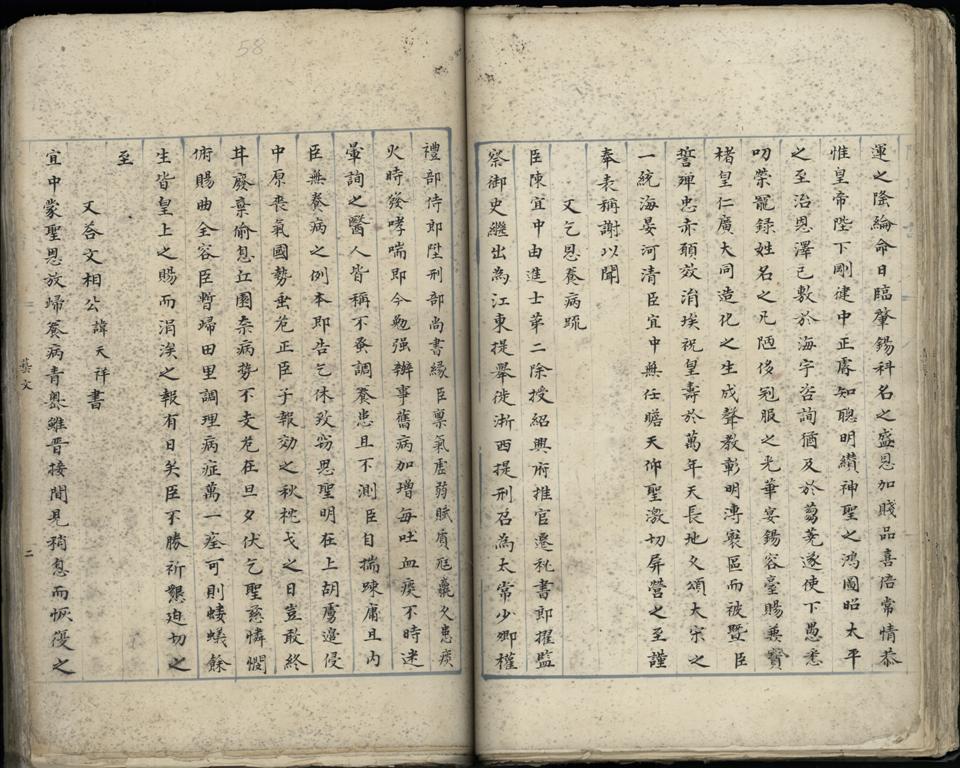 運之隆綸命日臨肇錫科名之盛恩加賤品喜倍常情恭
惟皇帝陛下剛健中正睿知聰明纘神聖之鴻圖昭太平
之至治恩澤已敷於海宇咨詢猶及於蒭蕘遂使下愚悉
叨榮寵録姓名之凡陋侈冠服之光華宴錫容臺賜兼寶
楮皇仁廣大同造化之生成聲教彰明溥寰區而被暨臣
誓殫忠赤願效涓埃祝皇壽於萬年天長地久頌太宋之
一統海晏河清臣宜中無任瞻天仰聖激切屏營之至謹
奉表稱謝以聞
又乞恩養病疏
臣陳宜中由進士第二除授紹興府推官遷秘書郎擢監
察御史繼出為江東提舉徙浙西提刑召為太常少卿權
禮部侍郎陞刑部尚書緣臣禀氣虛弱賦質尫羸久患痰
火時發哮喘即今勉强辦事舊病加增每吐血痰不時迷
暈詢之醫人皆稱不蚤調養患且不測臣自揣踈庸且内
臣無養病之例本即告乞休致窃思聖明在上胡虜邊侵
中原喪氣國勢垂危正臣子報効之秋枕戈之日豈敢終
其廢棄偷息丘園柰病勢不支危在旦夕伏乞聖慈憐憫
俯賜曲全容臣暫歸田里調理病症萬一痊可則螻蟻餘
生皆皇上之賜而涓涘之報有日矣臣不勝祈懇迫切之
至
又荅文相公諱天祥書
宜中蒙聖恩放歸養病青嶴雖晋接間見稍息而恢復之
藝文
二
58